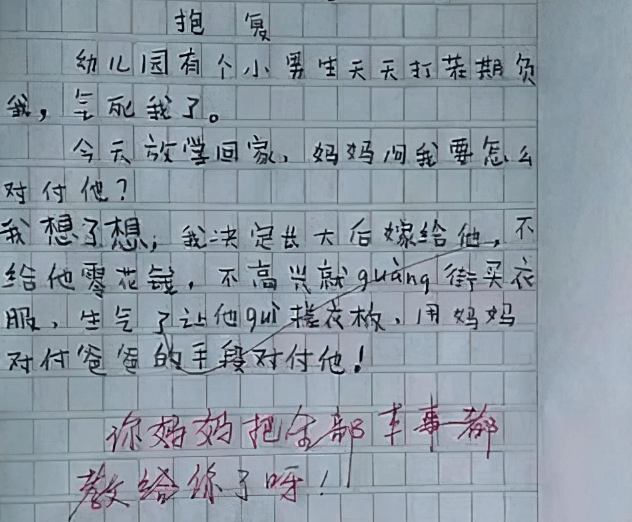 抱复
幼儿园有个小男生天天打茬期负
我,气死我了。
今天放学回家,妈妈问我要怎么
对付他?
我想了想,我决定长大后嫁给他,不
给他零花钱,不高兴就guàng街买衣
服,生气了让他guì搓衣板,用妈妈
对付爸爸的手段对付他!
你妈妈把全部本事都
教给你了呀!